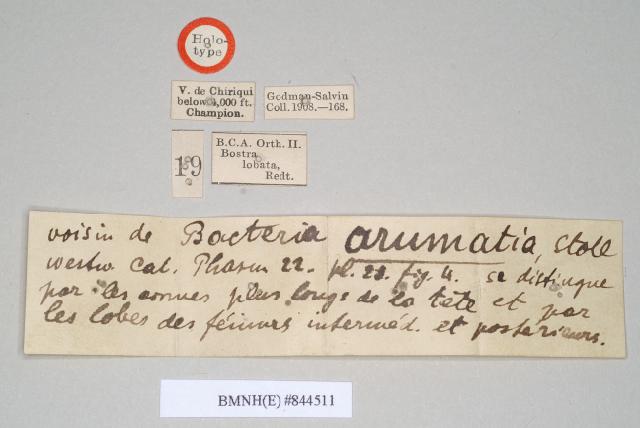 Holo-
type
V. de Chiriqui
below 4,000 ft.
Champion.
Godman-Salvin
Coll. 1908.—168.
19
B.C.A. Orth. II.
Bostra
lobata,
Redt.
voisin de Bacteria arumatia, Stoll
westw Cat. Phasm 22. pl. 22. fig. 4. se distingue
par les cornes plus longs de la tête et par
les lobes des fémurs interméd. et postérieurs.
BMNH(E) #844511